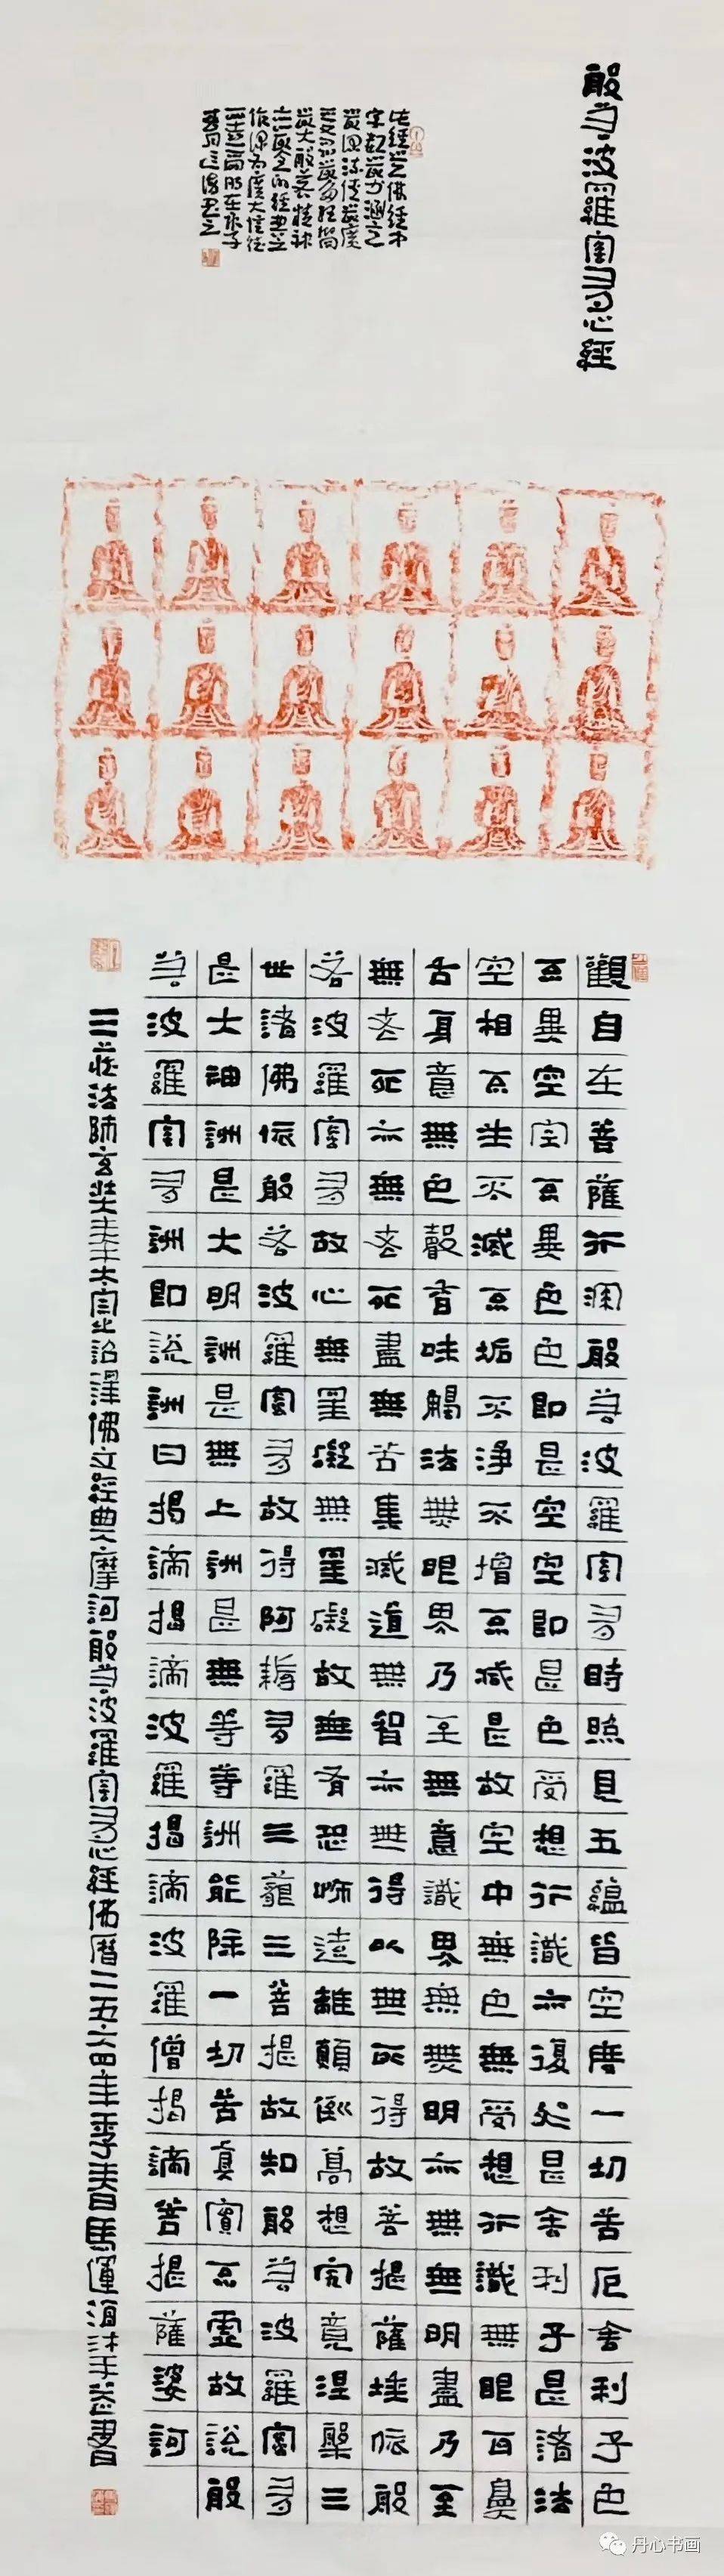 般若波羅蜜多心經
此經乃佛經中
字數最少涵之
觀自在菩薩行深般若波羅蜜多時照見五蘊皆空度一切苦厄舍利子色
不異空空不異色色即是空空即是色受想行識亦復如是舍利子是諸法
空相不生不滅不垢不淨不增不減是故空中無色無受想行識無眼耳鼻
舌身意無色聲香味觸法無眼界乃至無意識界無無明亦無無明盡乃至
無老死亦無老死盡無苦集滅道無智亦無得以無所得故菩提薩埵依般
若波羅蜜多故心無罣礙無罣礙故無有恐怖遠離顛倒夢想究竟涅槃三
世諸佛依般若波羅蜜多故得阿耨多羅三藐三菩提故知般若波羅蜜多
是大神詶是大明詶是無上詶是無等等詶能除一切苦真實不虛故說般
若波羅蜜多詶即說詶曰揭諦揭諦波羅揭諦波羅僧揭諦菩提薩婆訶
三藏法師玄奘奉太宗之詔譯佛文經典摩訶般若波羅蜜多心經佛曆二五六四年季春馬運海沐手敬書
丹心书画